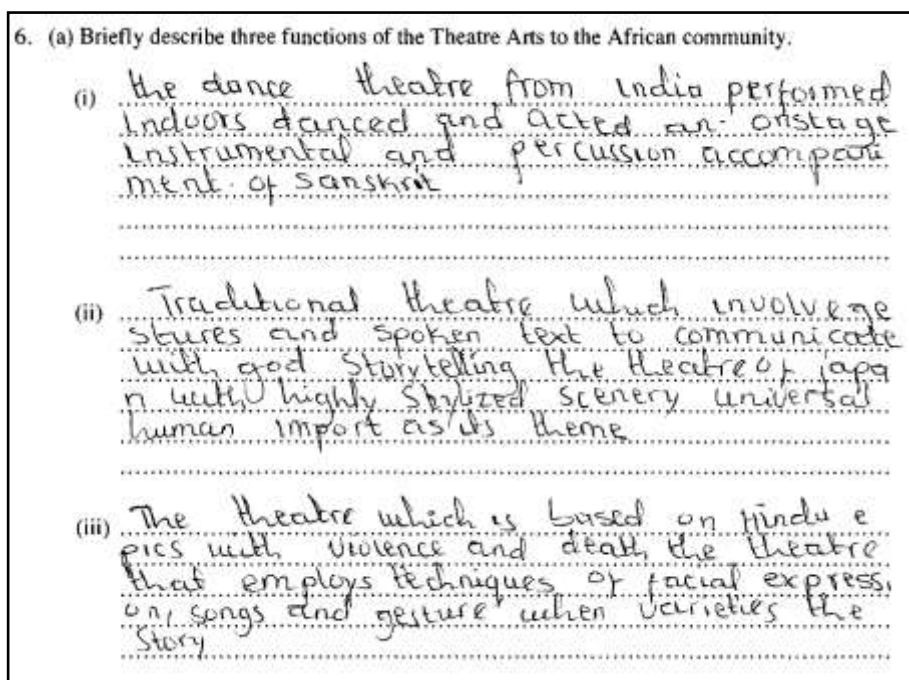 6. (a) Briefly describe three functions of the Theatre Arts to the African community.
(i) the dance theatre from India performed
indoors danced and acted an onstage
instrumental and percussion accompani
ment. of Sanskrit
(ii) Traditional theatre which involve ge
stures and spoken text to communicate
with god Storytelling the theatre of japa
n with highly stylized scenery universal
human import as its theme
(iii) The theatre which is based on Hindu e
pics with violence and death, the theatre
that employs techniques of facial expressi
on, songs and gesture when varieties the
Story